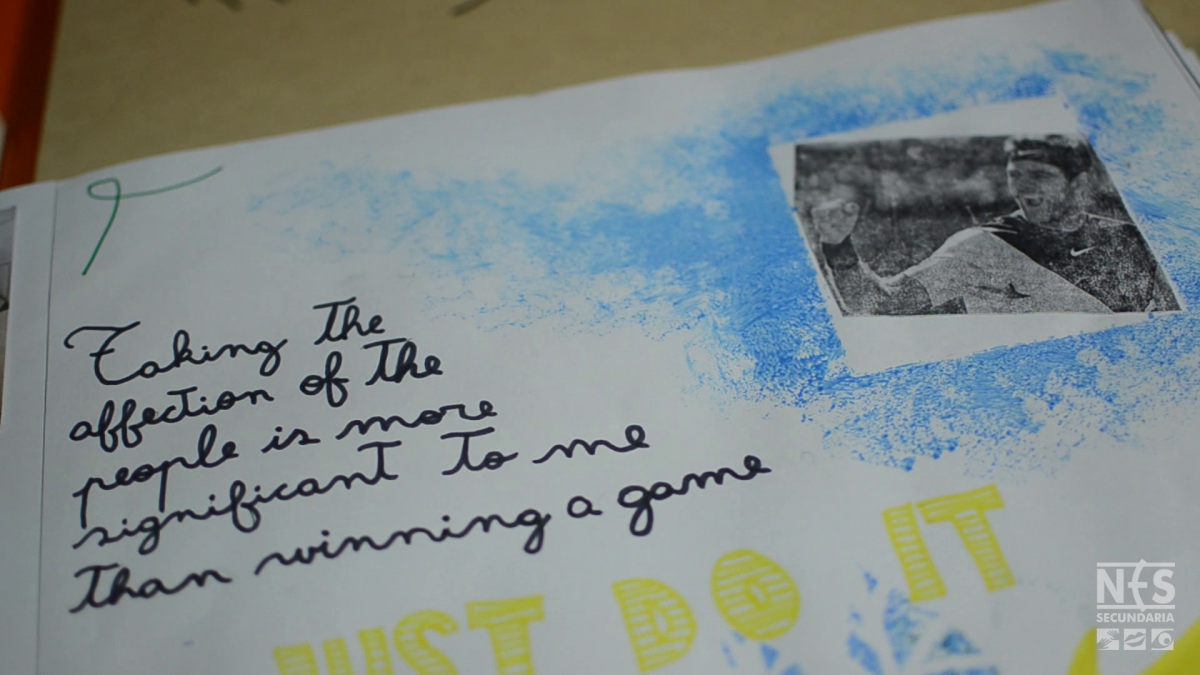 Taking the
affection of the
people is more
significant to me
than winning a game
JUST DO IT
NFS
SECUNDARIA